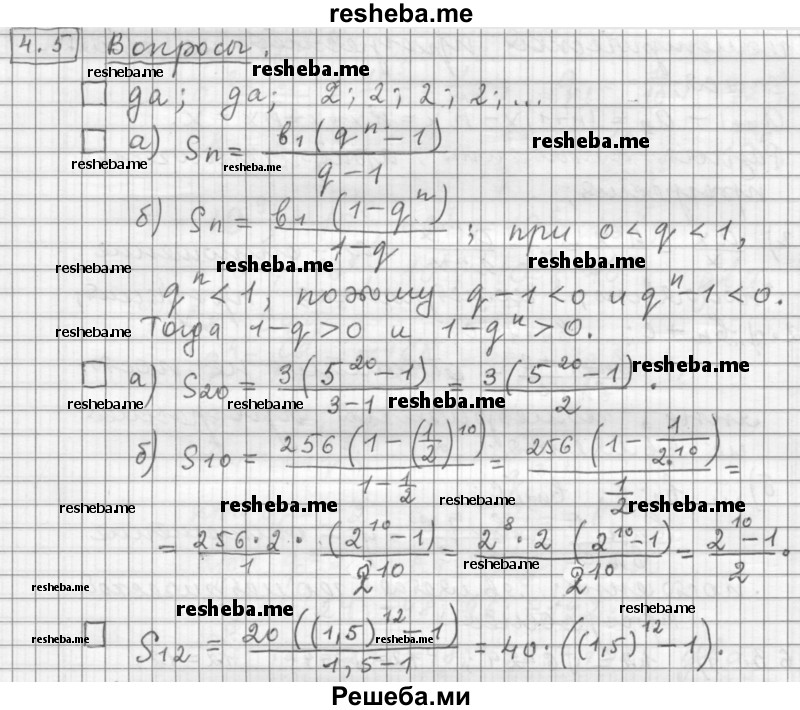 resheba.me
4.5 Вопросы.
resheba.me resheba.me
□ да; да; 2; 2; 2; 2; ...
□ а) Sn = в₁(qⁿ - 1) / (q - 1) resheba.me
resheba.me resheba.me
б) Sn = в₁ (1 - qⁿ) / (1 - q) ; при 0 < q < 1,
resheba.me resheba.me resheba.me
qⁿ < 1, поэтому q - 1 < 0 и qⁿ - 1 < 0.
resheba.me Тогда 1 - q > 0 и 1 - qⁿ > 0.
□ а) S₂₀ = 3(5²⁰ - 1) / (3 - 1) = 3(5²⁰ - 1) / 2 . resheba.me
resheba.me resheba.me resheba.me
б) S₁₀ = 256 (1 - (1/2)¹⁰) / (1 - 1/2) = 256 (1 - 1/2¹⁰) / (1/2) =
resheba.me resheba.me resheba.me resheba.me
= 256·2 / 1 · (2¹⁰ - 1) / 2¹⁰ = 2⁸·2 (2¹⁰ - 1) / 2¹⁰ = (2¹⁰ - 1) / 2 .
resheba.me resheba.me
resheba.me resheba.me
□ S₁₂ = 20 ((1,5)¹² - 1) / (1,5 - 1) = 40·((1,5)¹² - 1).
resheba.me resheba.me
Решеба.ми